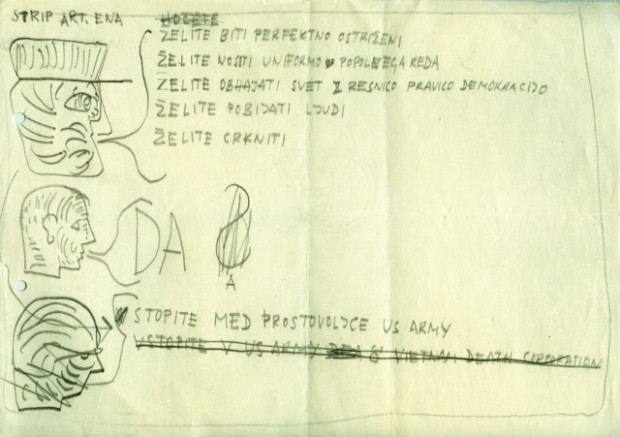 STRIP ART. ENA
HOČETE
ŽELITE BITI PERFEKTNO OSTRIŽENI
ŽELITE NOSITI UNIFORMO POPOLNEGA REDA
ŽELITE OBHAJATI SVET Z RESNICO PRAVICO DEMOKRACIJO
ŽELITE POBIJATI LJUDI
ŽELITE CRKNITI
DA
A
STOPITE MED PROSTOVOLJCE US ARMY
VSTOPITE V US ARMY & VIETNAM DEATH CORPORATION